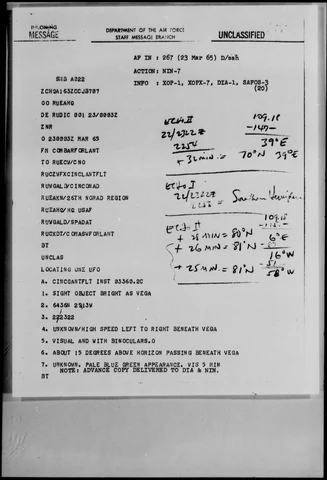 INCOMING
MESSAGE
DEPARTMENT OF THE AIR FORCE
STAFF MESSAGE BRANCH
UNCLASSIFIED
AF IN : 267 (23 Mar 65) D/sah
ACTION: NIN-7
INFO : XOP-1, XOPX-7, DIA-1, SAFOS-3
(20)
SMB A022
ZCHQA163ZCCJB787
OO RUEAHQ
DE RUCDIC 001 23/0003Z
ZNR
O 230003Z MAR 65
FM CONBARFORLANT
TO RUECW/CNO
RUCZWFXCINCLANTFLT
RUWGALD/CINCNORAD
RUEAKN/26TH NORAD REGION
RUEAHQ/HQ USAF
RUWGALB/SPADAT
RUCKDT/COMASWFORLANT
BT
UNCLAS
LOCATING ONE UFO
A. CINCSANTFLT INST 03360.2C
1. SIGHT OBJECT BRIGHT AS VEGA
2. 6436N 2213W
3. 222322
4. UNKNOWN/HIGH SPEED LEFT TO RIGHT BENEATH VEGA
5. VISUAL AND WITH BINOCULARS.O
6. ABOUT 15 DEGREES ABOVE HORIZON PASSING BENEATH VEGA
7. UNKNOWN. PALE BLUE GREEN APPEARANCE. VIS 5 MIN
NOTE: ADVANCE COPY DELIVERED TO DIA & NIN.
BT
Echo II
22/2322Z
2254
+ 32 min = 70°N 39°E
109.18
39°E
Echo I
22/2322Z
Southern
Echo II
+ 28 MIN = 80°N 6°E
+ 26 MIN = 81°N 16°W
+ 25 MIN = 81°N 58°W